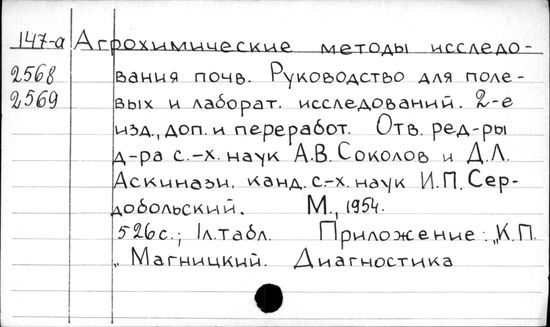 147-а Агрохимические методы исследо-
2568 вания почв. Руководство для поле-
2569 вых и лаборат. исследований. 2-е
изд., доп. и переработ. Отв. ред-ры
д-ра с.-х. наук А.В. Соколов и Д.Л.
Аскинази, канд. с.-х. наук И.П. Сер-
добольский. М., 1954.
526 с.; 1 л. табл. Приложение: „К.П.
„ Магницкий. Диагностика